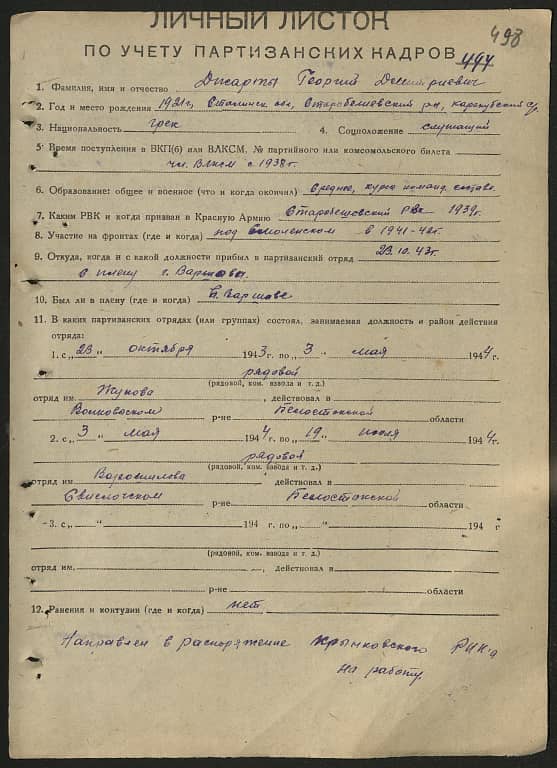 ЛИЧНЫЙ ЛИСТОК
498
ПО УЧЕТУ ПАРТИЗАНСКИХ КАДРОВ 497
1. Фамилия, имя и отчество Джарты Георгий Дмитриевич
2. Год и место рождения 1921г, Сталинск. обл, Старобешевский р-н,
3. Национальность грек 4. Соцположение служащий
5. Время поступления в ВКП(б) или ВЛКСМ, № партийного или комсомольского билета
чл. Влксм с 1938г.
6. Образование: общее и военное (что и когда окончил) среднее, курсы команд. состава
7. Каким РВК и когда призван в Красную Армию Старобешевский РВк 1939г.
8. Участие на фронтах (где и когда) под Смоленском в 1941-42г.
9. Откуда, когда и с какой должности прибыл в партизанский отряд 23.10.43г.
с плену г. Варшавы.
10. Был ли в плену (где и когда) в. Варшаве
11. В каких партизанских отрядах (или группах) состоял, занимаемая должность и район действия
отряда:
1. с „23 “ октября 1943 г. по „3 “ мая 1944 г.
рядовой
(рядовой, ком. взвода и т. д.)
отряд им. Жукова , действовал в
Волковоском р-не Белостокской области
2. с „3 “ мая 1944 г. по „19 “ июля 1944 г.
рядовой
(рядовой, ком. взвода и т. д.)
отряд им Ворошилова , действовал в
Свислочском р-не Белостокской области
3. с „ “ 194 г. по „ “ 194 г
(рядовой, ком. взвода и т. д.)
отряд им. , действовал в
р-не области
12. Ранения и контузии (где и когда) нет
Направлен в распоряжение Крынковского РИК-а
на работу